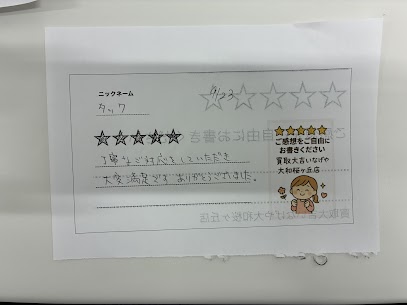 ニックネーム
タック
9/23
丁寧なご対応をしていただき
大変満足です ありがとうございました。
ご感想をご自由に
お書きください
買取大吉いなげや
大和桜ヶ丘店